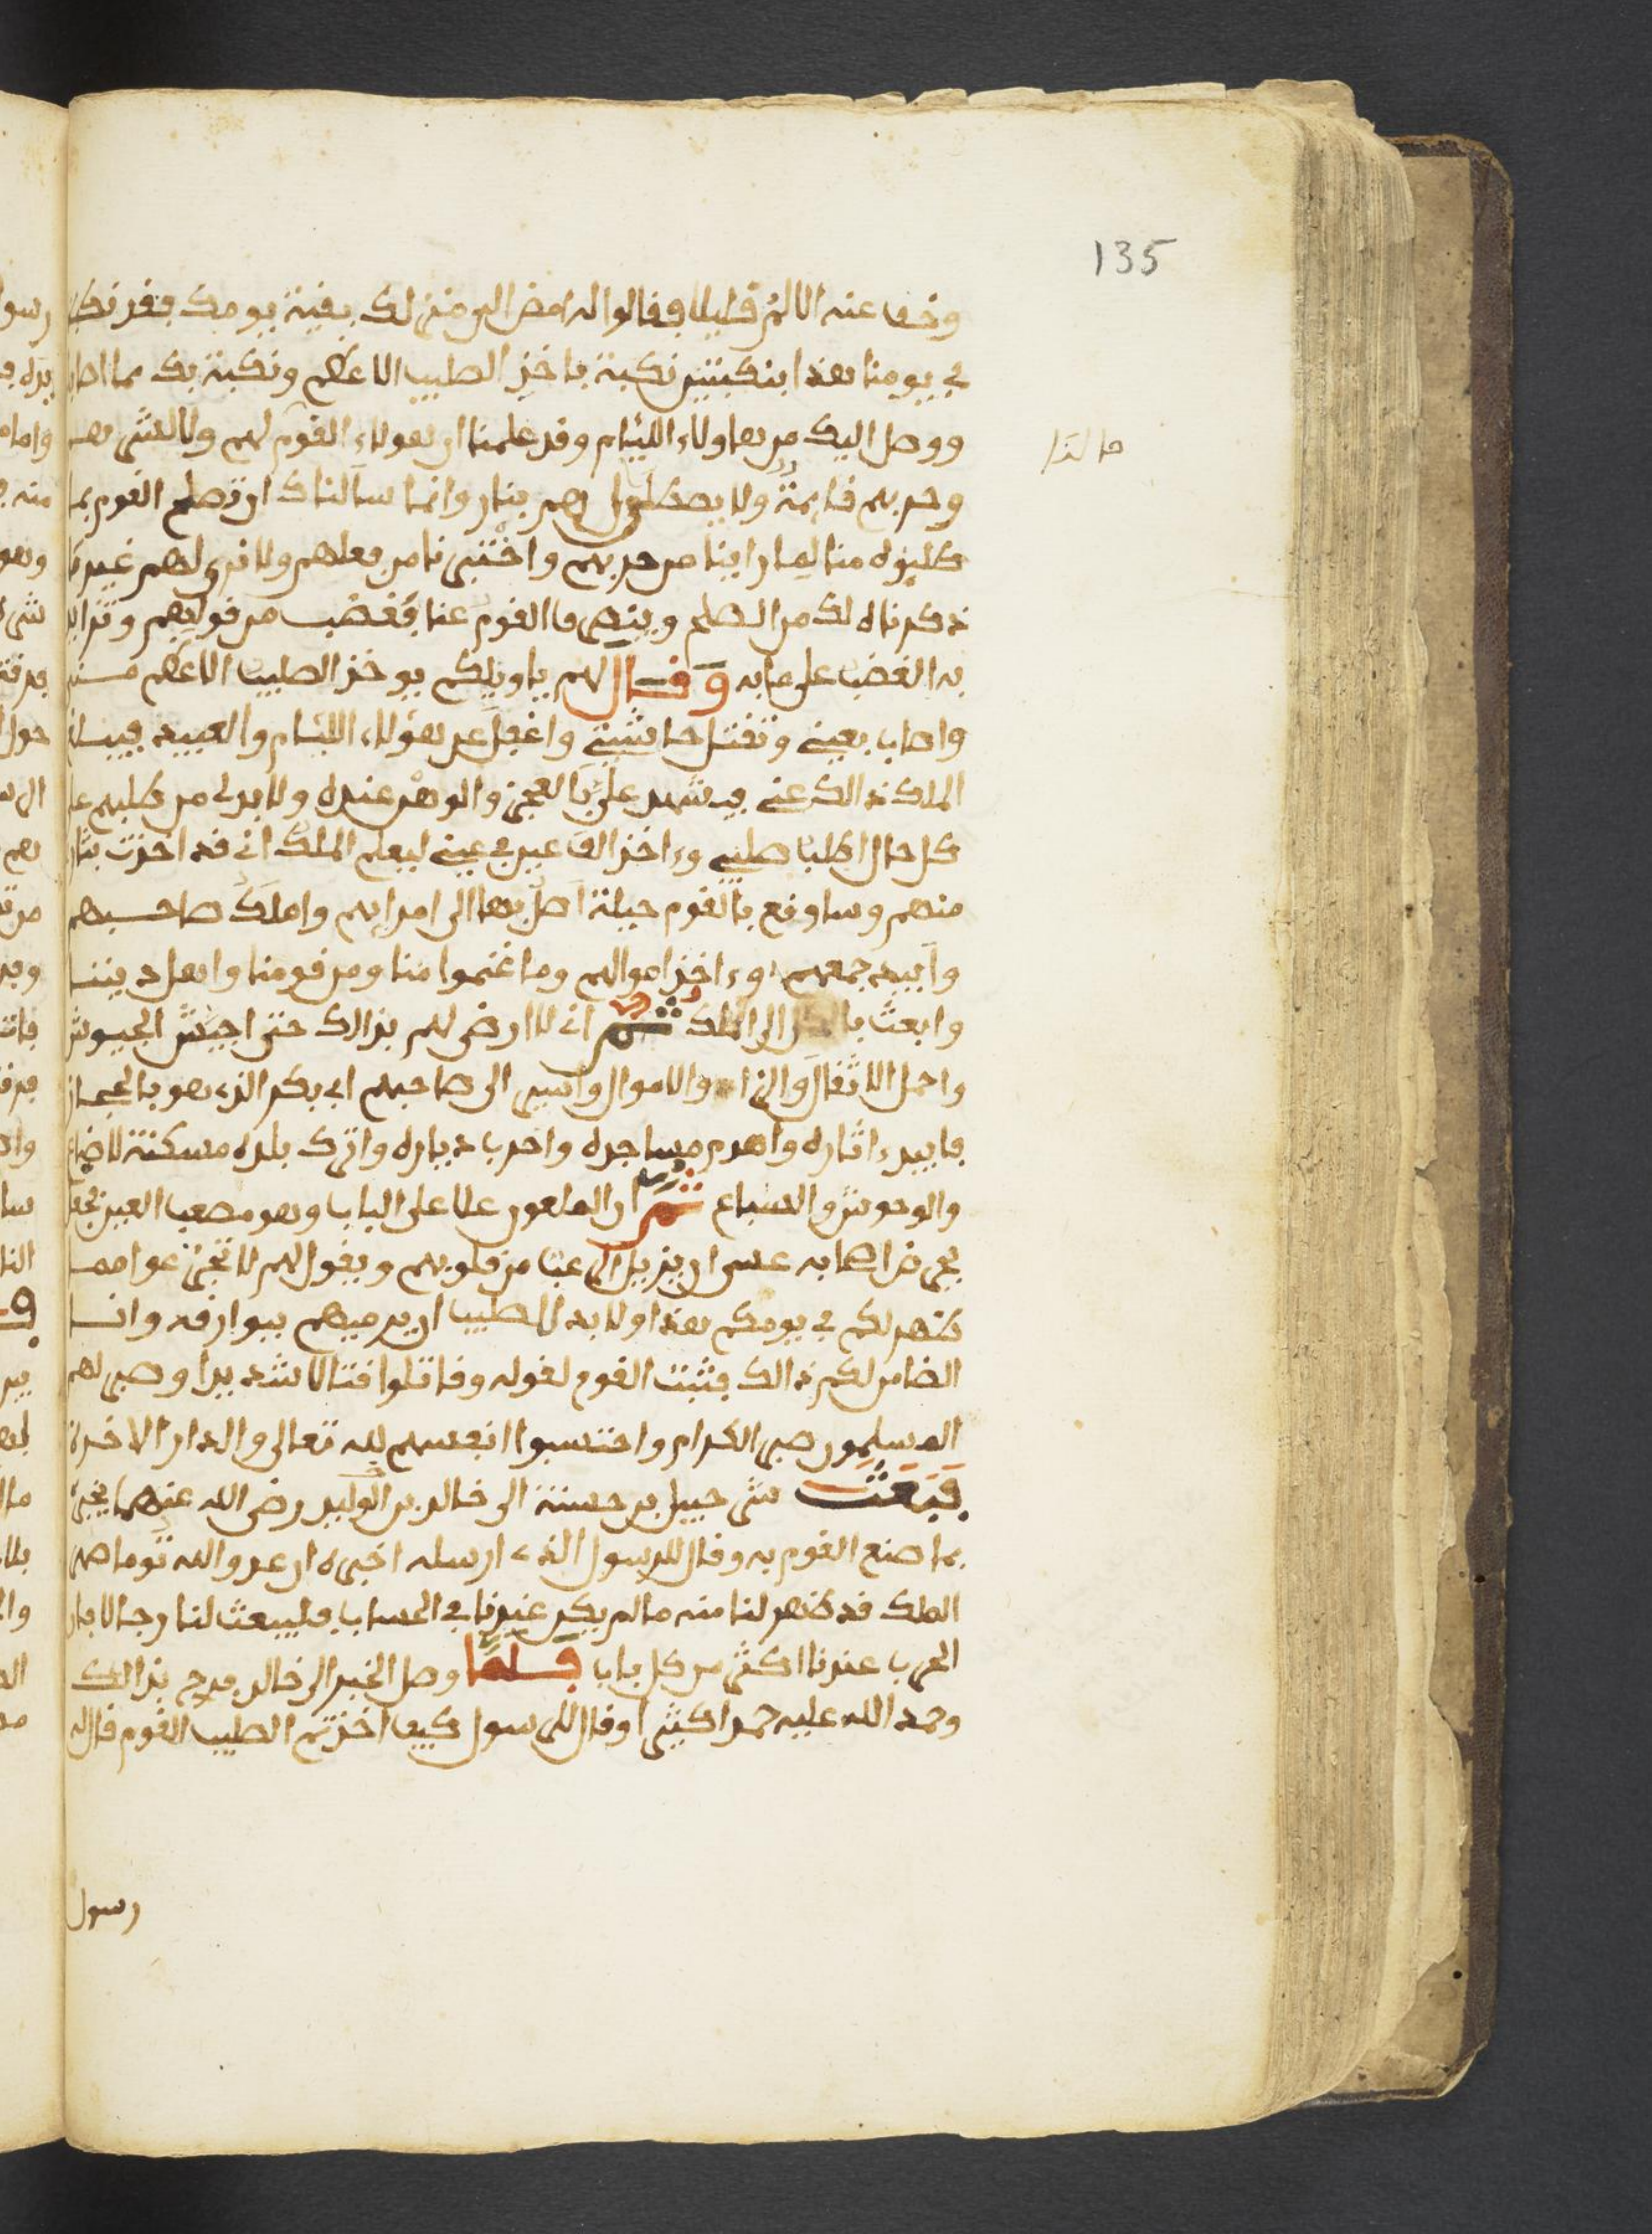 135
وخف عنه الالم قليلا وفالوا له امض الى منزلك بفية يومك ففد نكبنا
في يومنا هذا بنكبتين نكبة باخذ الصليب الاعظم ونكبة بك مما اصاب
ووصل اليك من هاولاء الليام وفد علمنا ان هولاء القوم لهم ولا لشى
وحربهم فايمة ولا يصطلى لهم بنار وانما سالناك ان تصلح القوم بما
طلبوه منا لما راينا من حربهم واختبرنا من فعلهم ولا نرى لهم غير ما
ذكرناه لك من الصلح وينصرفا القوم عنا فغضب من فولهم وتزايد
به الغضب على ما به وفال لهم ياويلكم يوخذ الصليب الاعظم مني
واصاب بعيني وتفتل حاشيتي واغفل عن هؤلاء الليام والعبيد فيبلغ
الملك ذالك عني فيشهد علي بالعجز والوهن عنده ولا بد لي من طلبهم على
كل حال اطلب صليبي وءاخذ الف عين في عيني ليعلم الملك اني فد اخذت بثار
منهم وساوفع بالقوم حيلة اصل بها الى اميرهم واملك صاحبهم
وابيد جمعهم وءاخذ اموالهم وما غنموا منا ومن فومنا واهل ديننا
وابعث بالكل الى الملك ثم اني لا ارضى لهم بذالك حتى اجيش الجيوش
واحمل الاثفال والزاد والاموال واسير الى صاحبهم ابي بكر الذي هو بالحجاز
فابيد ءاثاره واهدم مساجده واخرب دياره واترك بلده مسكنة للضباع
والوحوش والسباع ثم ان الملعون علا على الباب وهو معصب العين فجعل
يحرض اصحابه عسى ان يزيل الرعب من فلوبهم ويفول لهم لا تجزعوا مما
ظهر لكم في يومكم هذا ولا بد للصليب ان يرميهم ببوارفه وانا
الضامن لكم ذالك فثبت القوم لفوله وفاتلوا فتالا شديدا وصبر لهم
المسلمون صبر الكرام واحتسبوا انفسهم لله تعالى والدار الاخرة
فبعث شرحبيل بن حسنة الى خالد بن الوليد رضى الله عنهما يخبره
بما صنع القوم به وفال للرسول الذي ارسله اخبره ان عدو الله توما صهر
الملك فد ظهر لنا منه ما لم يكن عندنا في الحساب فليبعث لنا رجالا فان
الحرب عندنا اكثر من كل باب فلما وصل الخبر الى خالد فرح بذالك
وحمد الله عليه حمدا كثيرا وفال للرسول كيف اخذتم الصليب القوم فال له
رسول